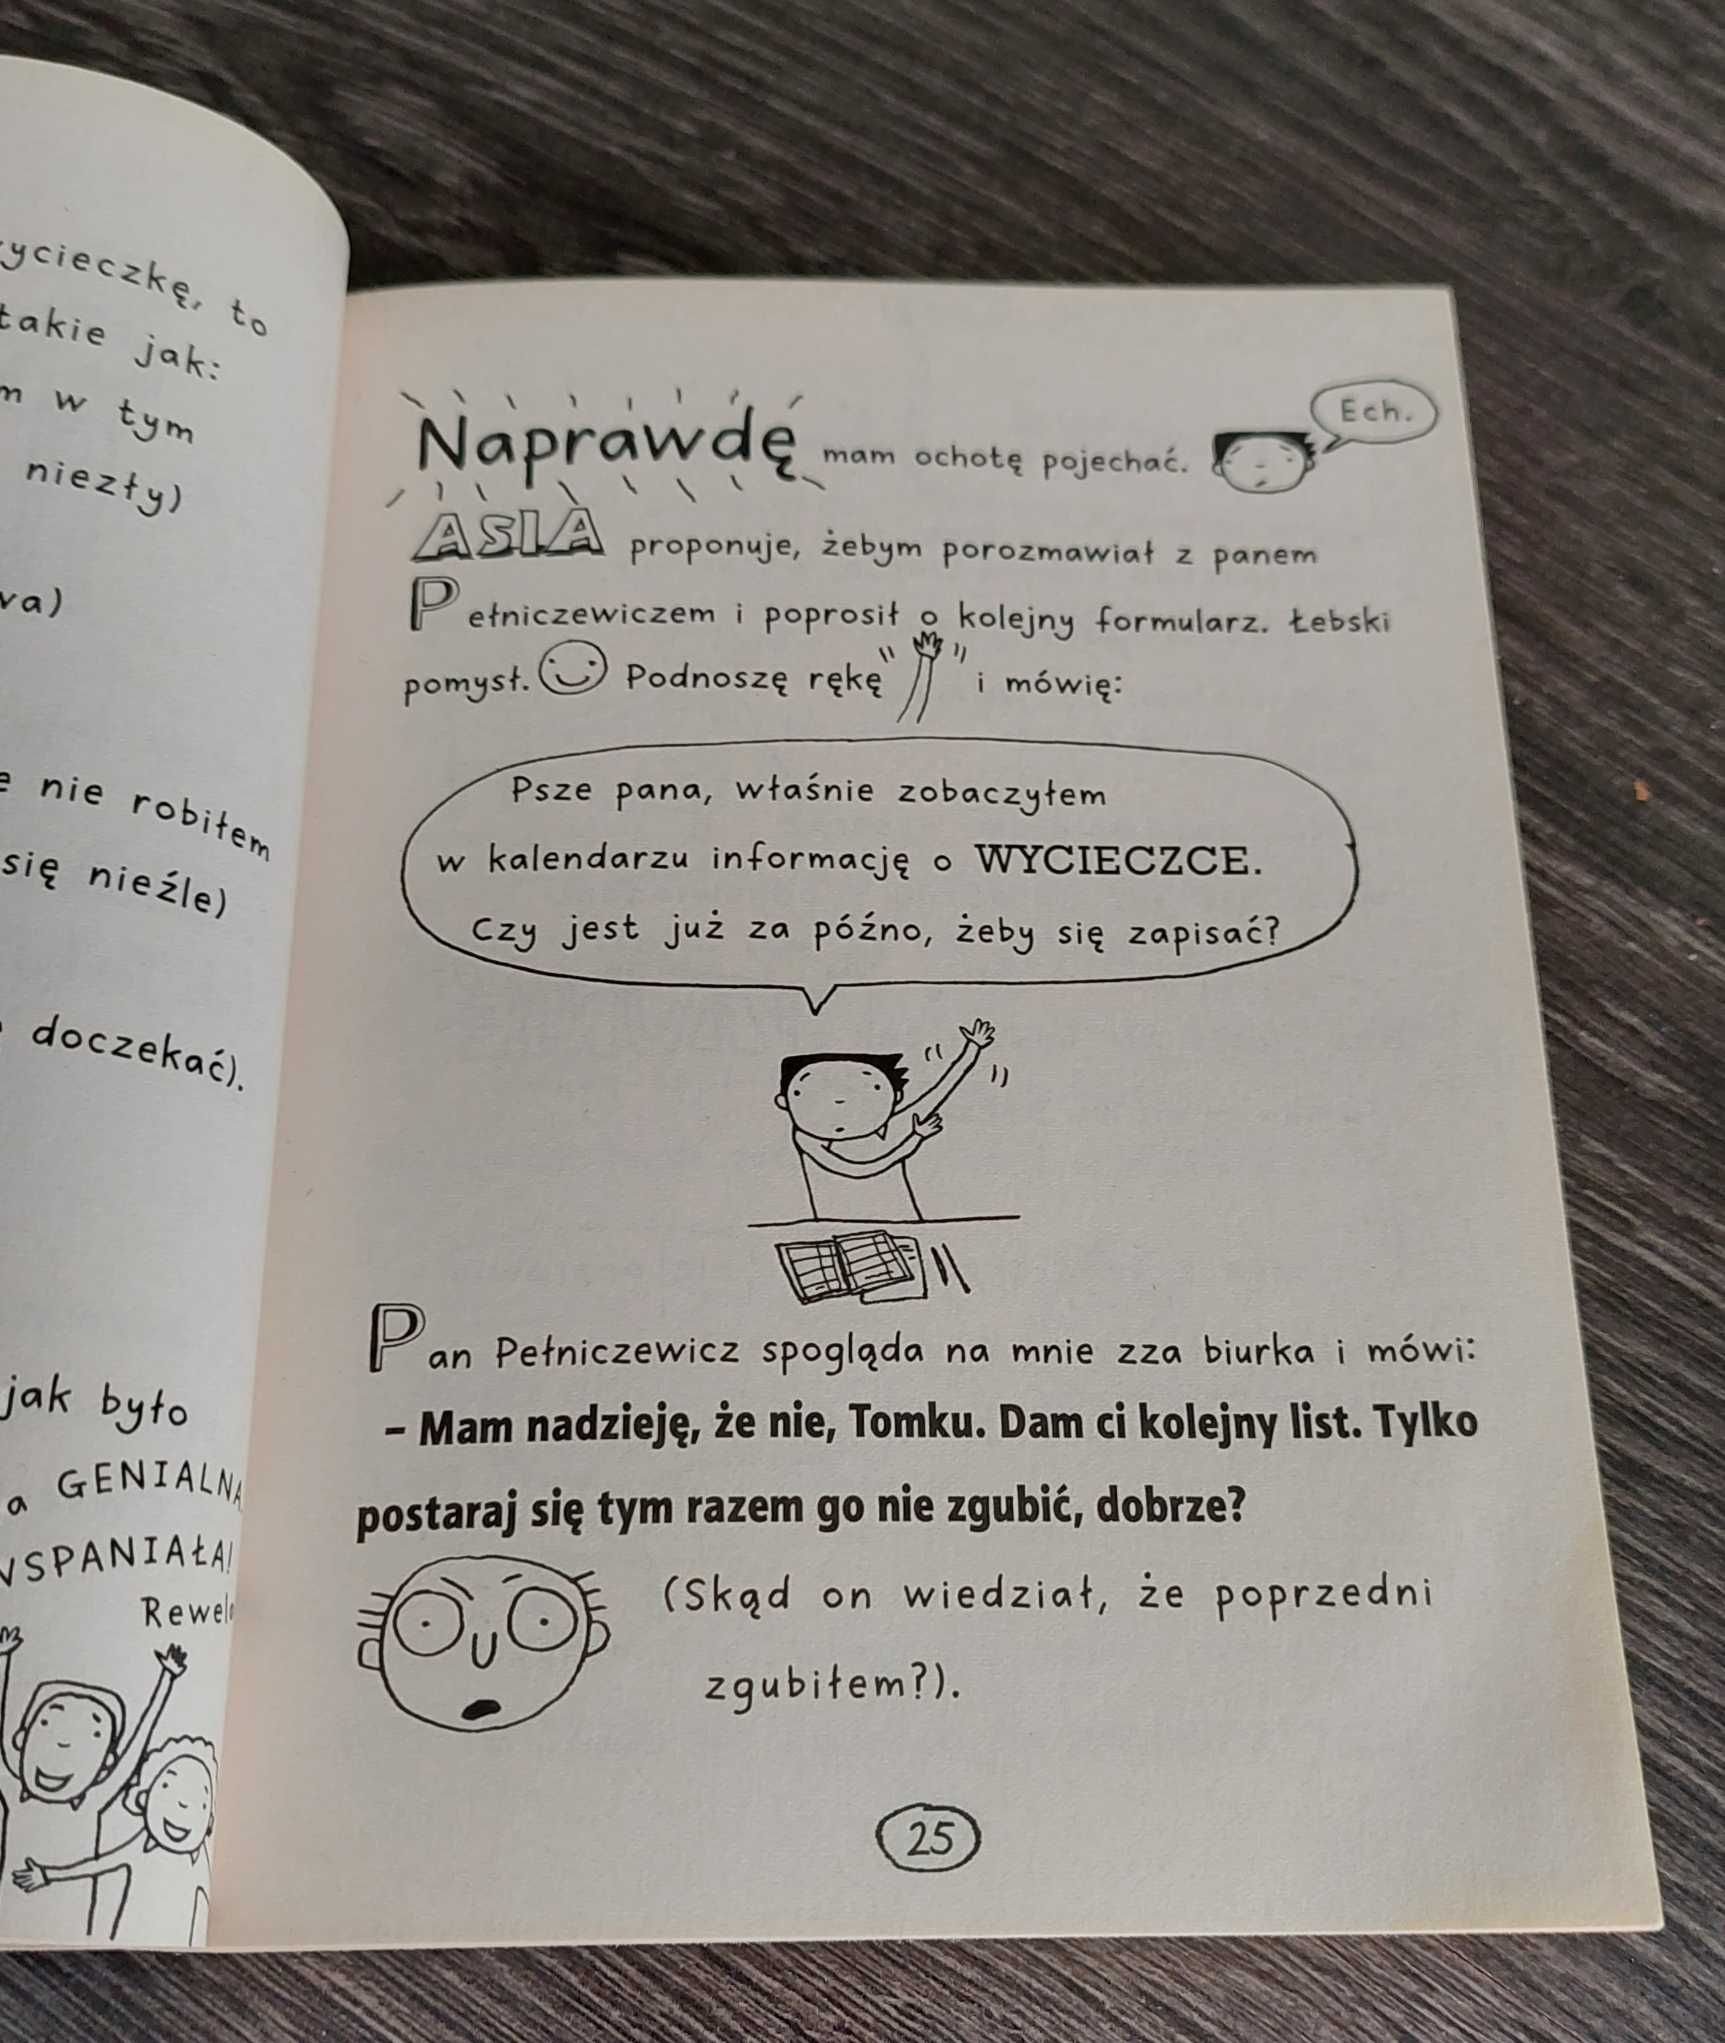 to
takie jak:
w tym
niezły)
nie robiłem
się nieźle)
doczekać).
jak było
a GENIALNA
WSPANIAŁA!
Naprawdę mam ochotę pojechać.
Ech.
ASIA proponuje, żebym porozmawiał z panem
Pełniczewiczem i poprosił o kolejny formularz. Łebski
pomysł. Podnoszę rękę i mówię:
Psze pana, właśnie zobaczyłem
w kalendarzu informację o WYCIECZCE.
Czy jest już za późno, żeby się zapisać?
Pan Pełniczewicz spogląda na mnie zza biurka i mówi:
– Mam nadzieję, że nie, Tomku. Dam ci kolejny list. Tylko
postaraj się tym razem go nie zgubić, dobrze?
(Skąd on wiedział, że poprzedni
zgubiłem?).
25